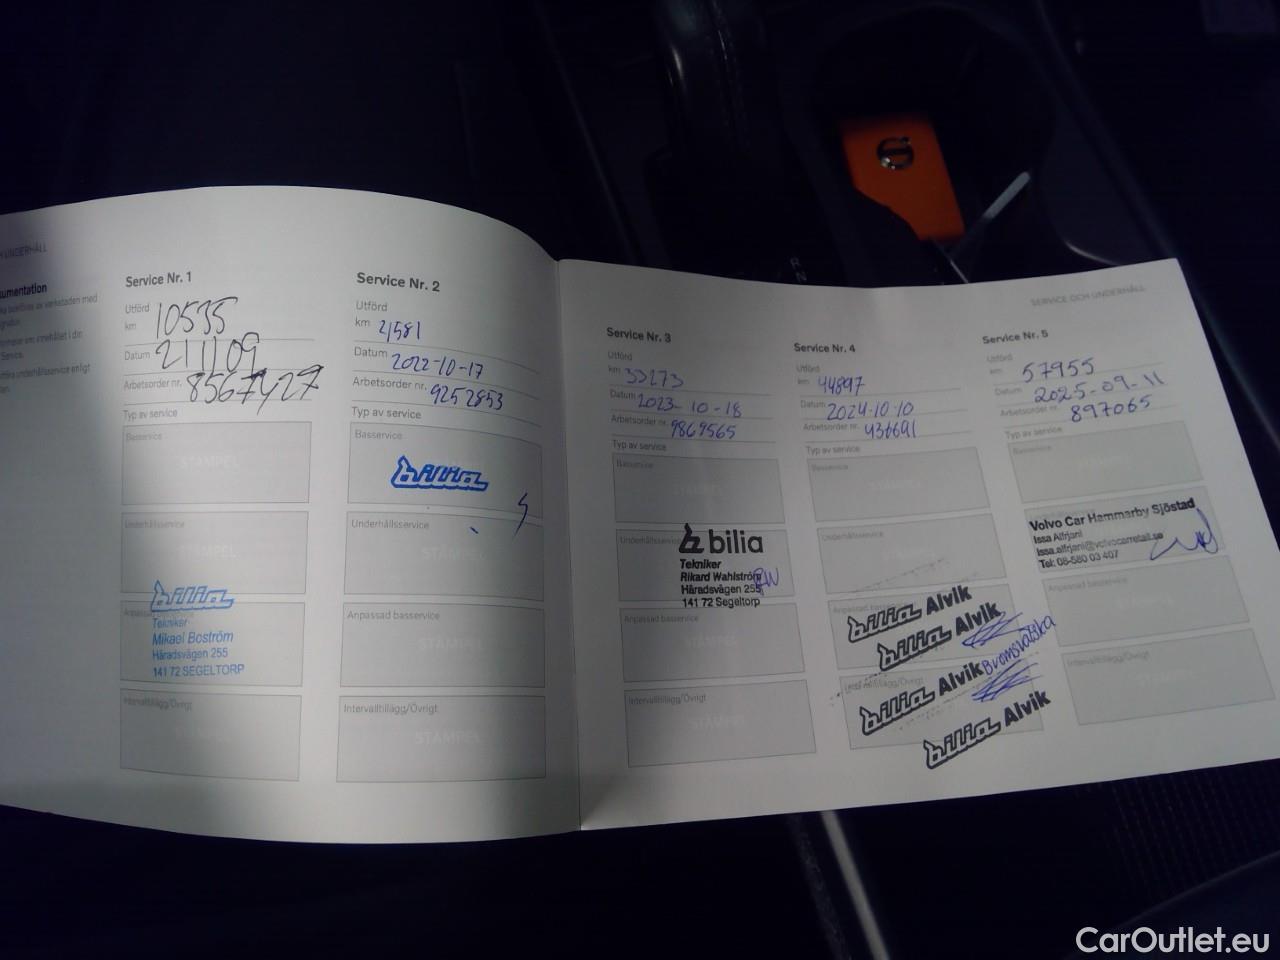 UNDERHÅLL
umentation
Service Nr. 1
Utförd
km 10535
Datum 211109
Arbetsorder nr. 8567427
Typ av service
Basservice
STÄMPEL
Underhållsservice
STÄMPEL
Anpassad basservice
bilia
Tekniker
Mikael Boström
Häradsvägen 255
141 72 SEGELTORP
Intervalltillägg/Övrigt
STÄMPEL
Service Nr. 2
Utförd
km 21581
Datum 2022-10-17
Arbetsorder nr. 9252853
Typ av service
Basservice
bilia
Underhållsservice
STÄMPEL
Anpassad basservice
STÄMPEL
Intervalltillägg/Övrigt
STÄMPEL
SERVICE OCH UNDERHÅLL
Service Nr. 3
Utförd
km 33273
Datum 2023-10-18
Arbetsorder nr. 9869565
Typ av service
Basservice
STÄMPEL
Underhållsservice
bilia
Tekniker
Rikard Wahlström RW
Häradsvägen 255
141 72 Segeltorp
Anpassad basservice
STÄMPEL
Intervalltillägg/Övrigt
STÄMPEL
Service Nr. 4
Utförd
km 44897
Datum 2024-10-10
Arbetsorder nr. 436691
Typ av service
Basservice
Underhållsservice
Anpassad
bilia Alvik
bilia Alvik
bilia Alvik Bromsvätska
bilia Alvik
Service Nr. 5
Utförd
km 57955
Datum 2025-09-11
Arbetsorder nr. 897065
Typ av service
Basservice
Volvo Car Hammarby Sjöstad
Issa Alfrjani
issa.alfrjani@volvocarretail.se
Tel: 08-580 03 407
Anpassad basservice
STÄMPEL
Intervalltillägg/Övrigt
STÄMPEL
R
N
CarOutlet.eu